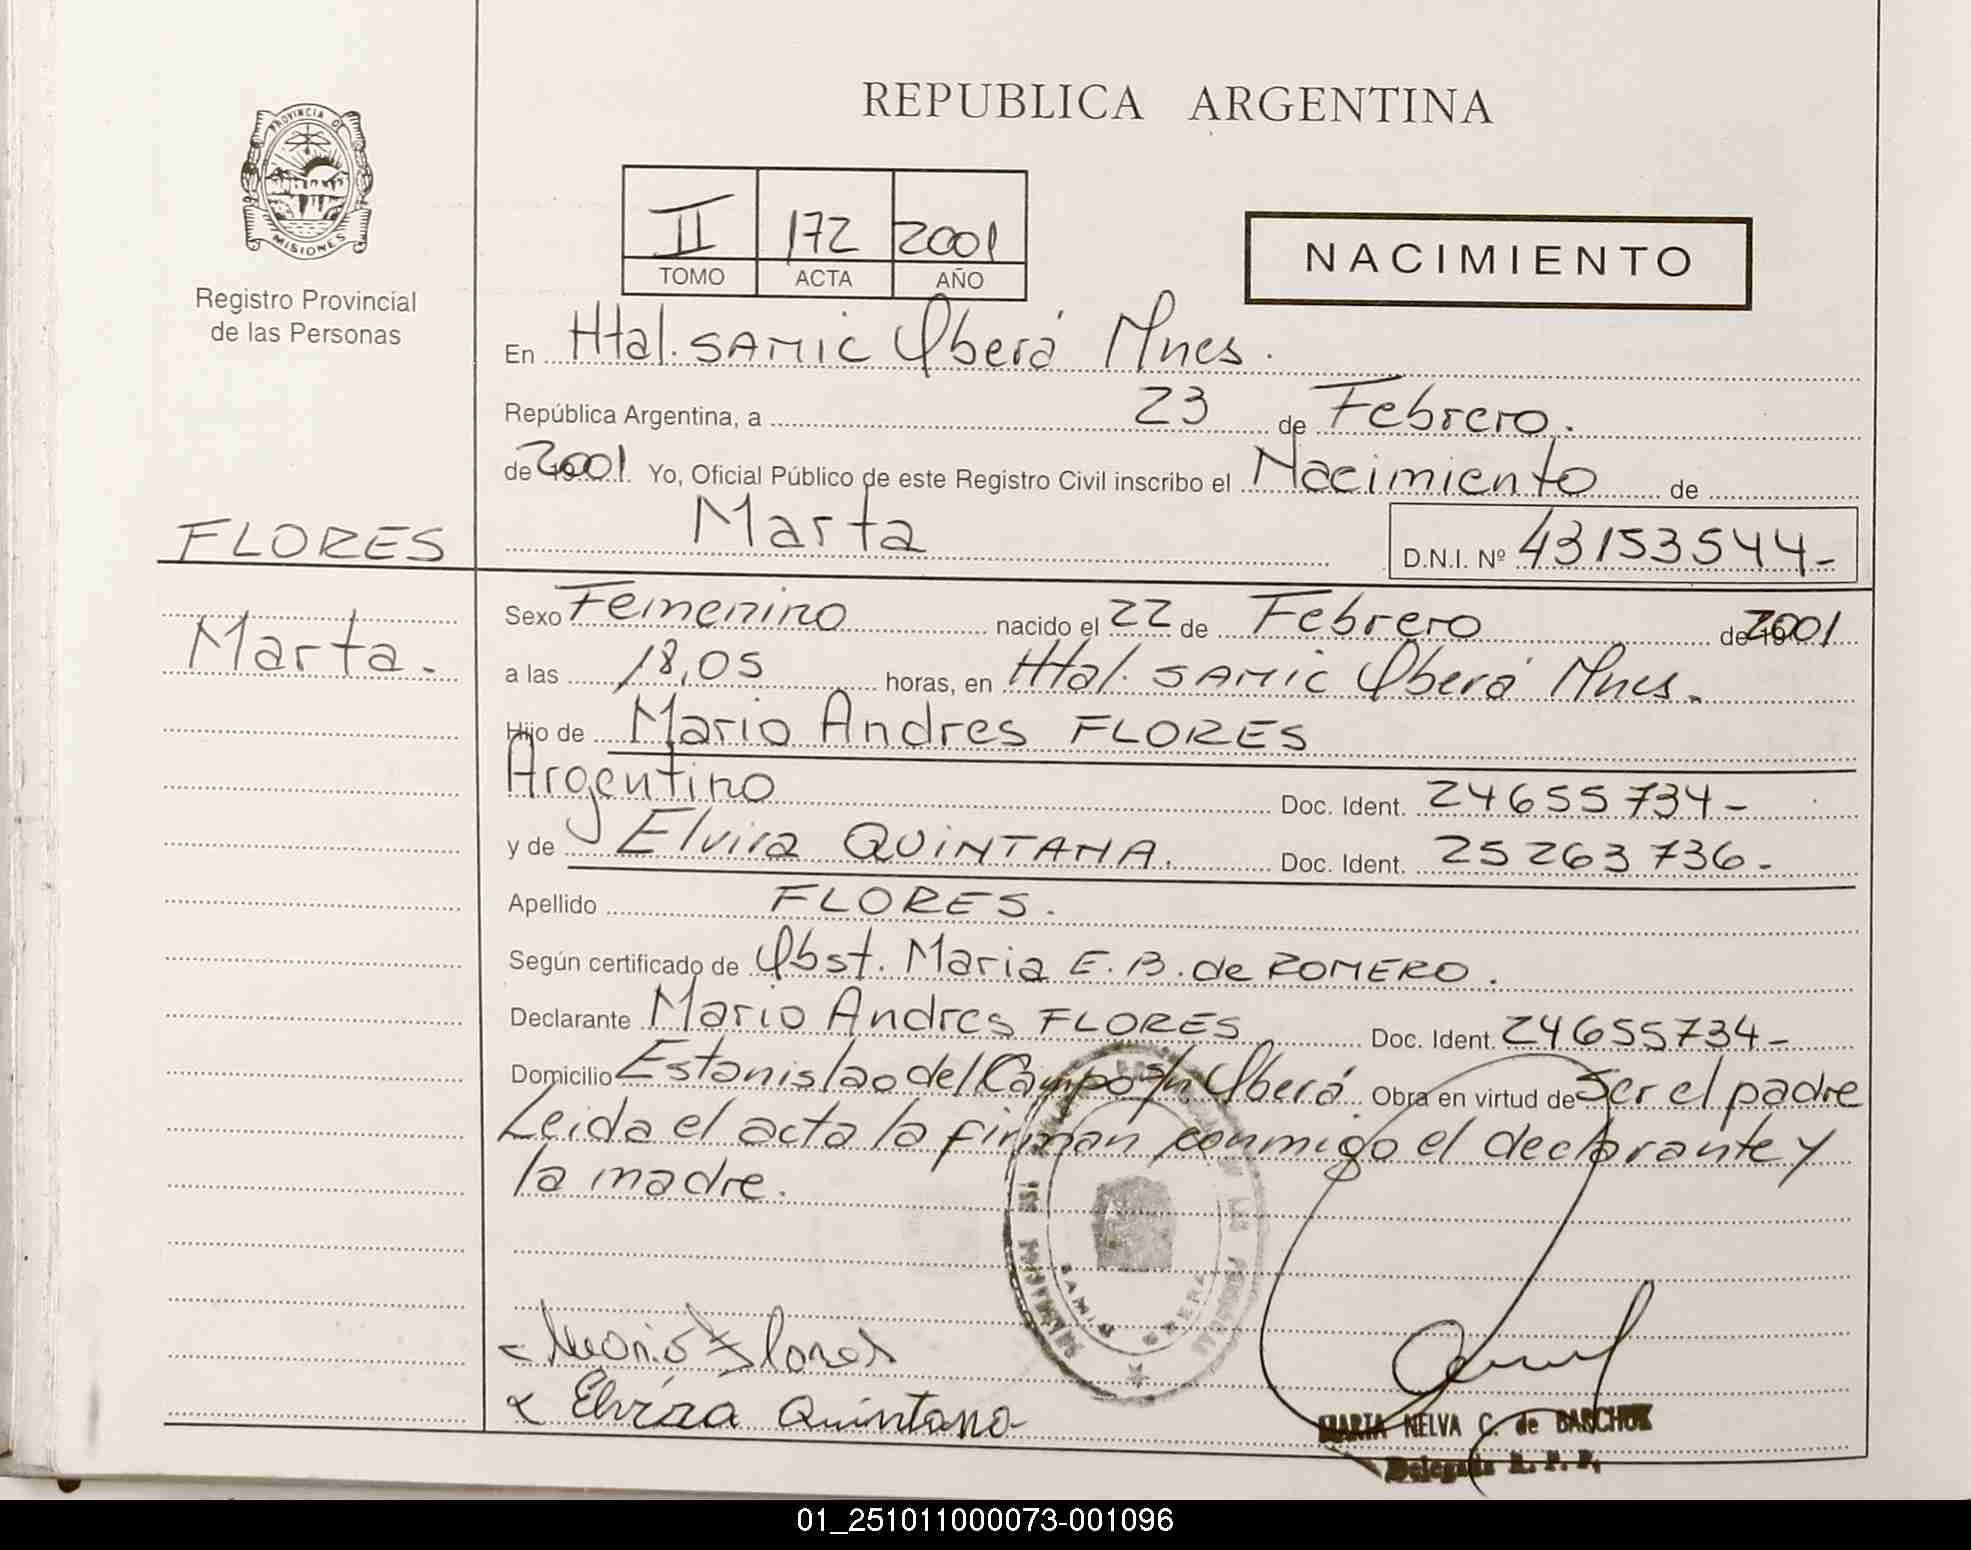 REPUBLICA ARGENTINA
PROVINCIA DE
MISIONES
Registro Provincial
de las Personas
II 172 2001
TOMO ACTA AÑO
NACIMIENTO
En Htal. SAMIC Oberá Mnes.
República Argentina, a 23 de Febrero.
de 2001 Yo, Oficial Público de este Registro Civil inscribo el Nacimiento de
FLORES
Marta
D.N.I. Nº 43153544-
Marta.
Sexo Femenino nacido el 22 de Febrero de 2001
a las 18,05 horas, en Htal. SAMIC Oberá Mnes.
Hijo de Mario Andres FLORES
Argentino Doc. Ident. 24655734-
y de Elvira QUINTANA. Doc. Ident. 25263736-
Apellido FLORES.
Según certificado de Obst. Maria E. B. de ROMERO.
Declarante Mario Andres FLORES Doc. Ident. 24655734-
Domicilio Estanislao del Campo s/n Oberá. Obra en virtud de Ser el padre
Leida el acta la firman conmigo el declarante y
la madre.
SAMIC OBERA
Mario Flores
Elvira Quintana
MARTA NELVA C. de BASCHUK
Delegada R. P. P.
01_251011000073-001096